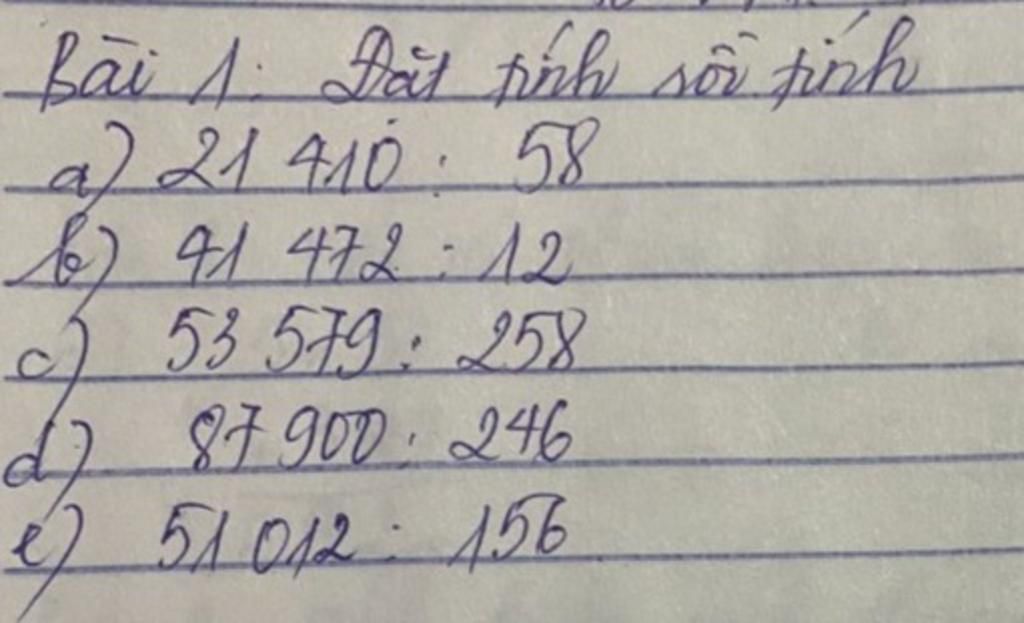 Bài 1: Đặt tính rồi tính
a) 21 410 : 58
b) 41 472 : 12
c) 53 579 : 258
d) 87 900 : 246
e) 51 012 : 156